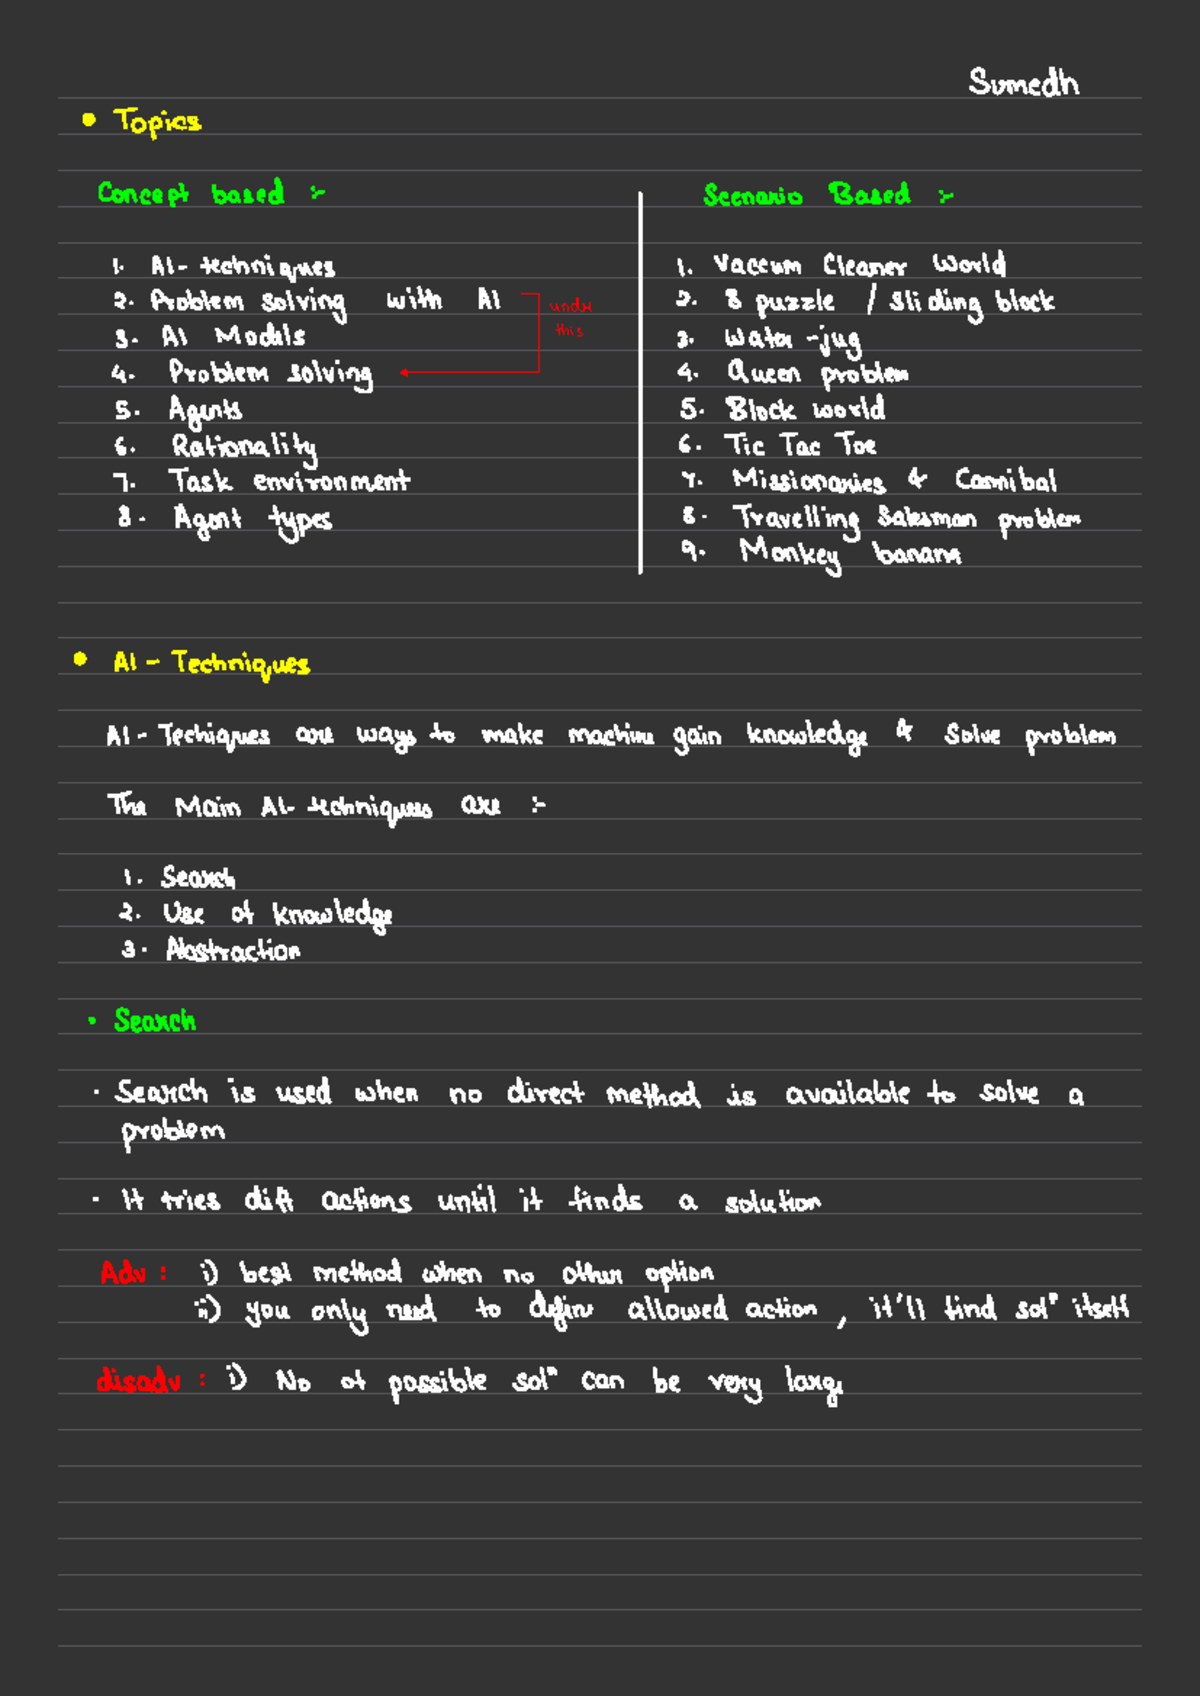 Sumedh
• Topics
Concept based :-
1. AI - techniques
2. Problem solving with AI
under
this
3. AI Models
4. Problem solving
5. Agents
6. Rationality
7. Task environment
8. Agent types
Scenario Based :-
1. Vaccum Cleaner World
2. 8 puzzle / Sliding block
3. Water - jug
4. Queen problem
5. Block world
6. Tic Tac Toe
7. Missionaries & Cannibal
8. Travelling Salesman problem
9. Monkey banana
• AI - Techniques
AI - Techiques are ways to make machine gain knowledge & Solve problem
The Main AI- techniques are :-
1. Search
2. Use of knowledge
3. Abstraction
• Search
• Search is used when no direct method is available to solve a
problem
• It tries diff actions until it finds a solution
Adv : i) best method when no other option
ii) you only need to define allowed action , it'll find solⁿ itself
disadv : i) No of possible solⁿ can be very large